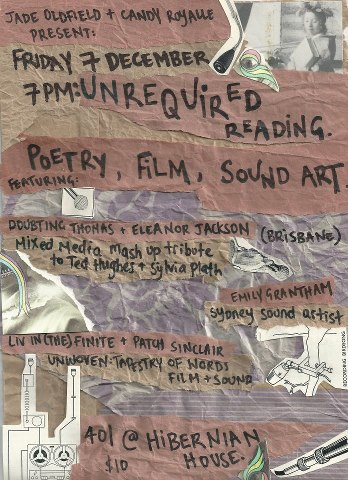 JADE OLDFIELD + CANDY ROYALLE
PRESENT:
FRIDAY 7 DECEMBER
7PM: UNREQUiRED
READING.
POETRY, FiLM, SOUND ART.
FEATURING:
DOUBTING THOMAS + ELEANOR JACKSON (BRiSBANE)
Mixed Media Mash up tribute
to Ted Hughes + Sylvia Plath
EMILY GRANTHAM
sydney sound artist
LIV IN(THE)FINITE + PATCH SINCLAIR
UNWOVEN: TAPESTRY OF WORDS
FILM + SOUND
401 @ HiBERNIAN
HOUSE.
$10